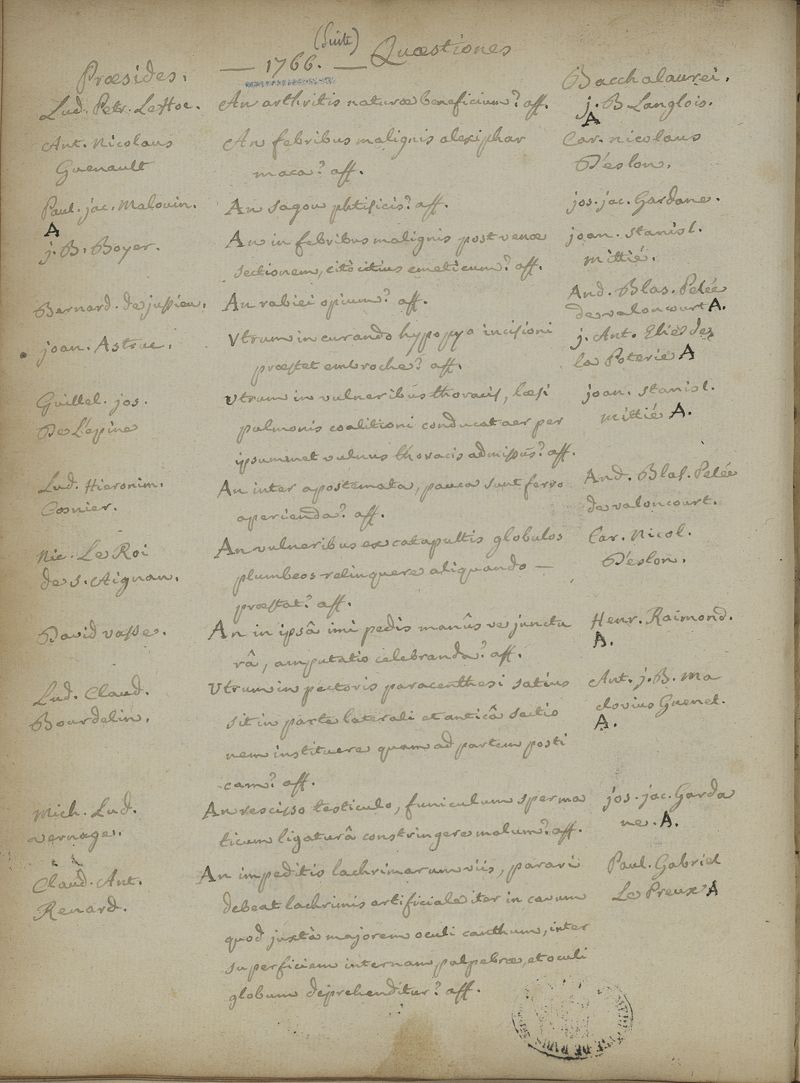 (Suite)
Præsides. — 1766. — Quæstiones Bacchalaurei.
Lud. Petr. LeHoc. An arthritis naturæ beneficium? aff. j. B Langlois.
A
Ant. Nicolaus An febribus malignis alexiphar Car. nicolaus
Guenault maca? aff. D'eslon.
Paul. jac. Malouin. An sagou phtisicis? aff. jos. jac. Gardane.
A
j. B. Boyer. An in febribus malignis post venæ joan. stanisl.
sectionem, citò citius emeticum? aff. mittié.
Bernard. de jussieu. An rabiei opium? aff. And. Blas. Pelée
de valoncourt A.
joan. Astruc. Utrum in curando hypopya incisioni j. Ant. Elies de
præstet embroche? aff. la Poterie A
Guillel. jos. Utrum in vulneribus thoracis, læsi joan. stanisl.
De L'épine pulmonis coalitioni conducat aer per mittié A.
ipsummet vulnus thoracis admissus? aff.
Lud. Hieronim. An inter apostemata, pauca sunt ferro And. Blas. Pelée
Cosnier. aperienda? aff. de valoncourt.
Nic. Le Roi An vulneribus ex catapultis globulos Car. Nicol.
de s. Aignan. plumbeos relinquere aliquando — D'eslon.
præstat? aff.
David vasse. An in ipsâ imi pedis manûs ve junctu Henr. Raimond.
râ, amputatio celebranda? aff. A.
Lud. Claud. Utrum in pectoris paracenthesi satius Ant. j. B. Ma
Bourdelin. sit in parte laterali et anticâ sectio clovius Guenet.
nem instituere quam ad partem posti A.
cam? aff.
Mich. Lud. An rescisso testiculo, funiculum sperma jos. jac. Garda
vernage. ticum ligaturâ constringere malum? aff. ne. A.
Claud. Ant. An impeditis lachrimarum viis, parari Paul. Gabriel
Renard. debeat lachrimis artificiale iter in cavum Le Preux A
quod juxtà majorem oculi canthum, inter
superficiem internam palpebræ, et oculi
globum deprehenditur? aff.